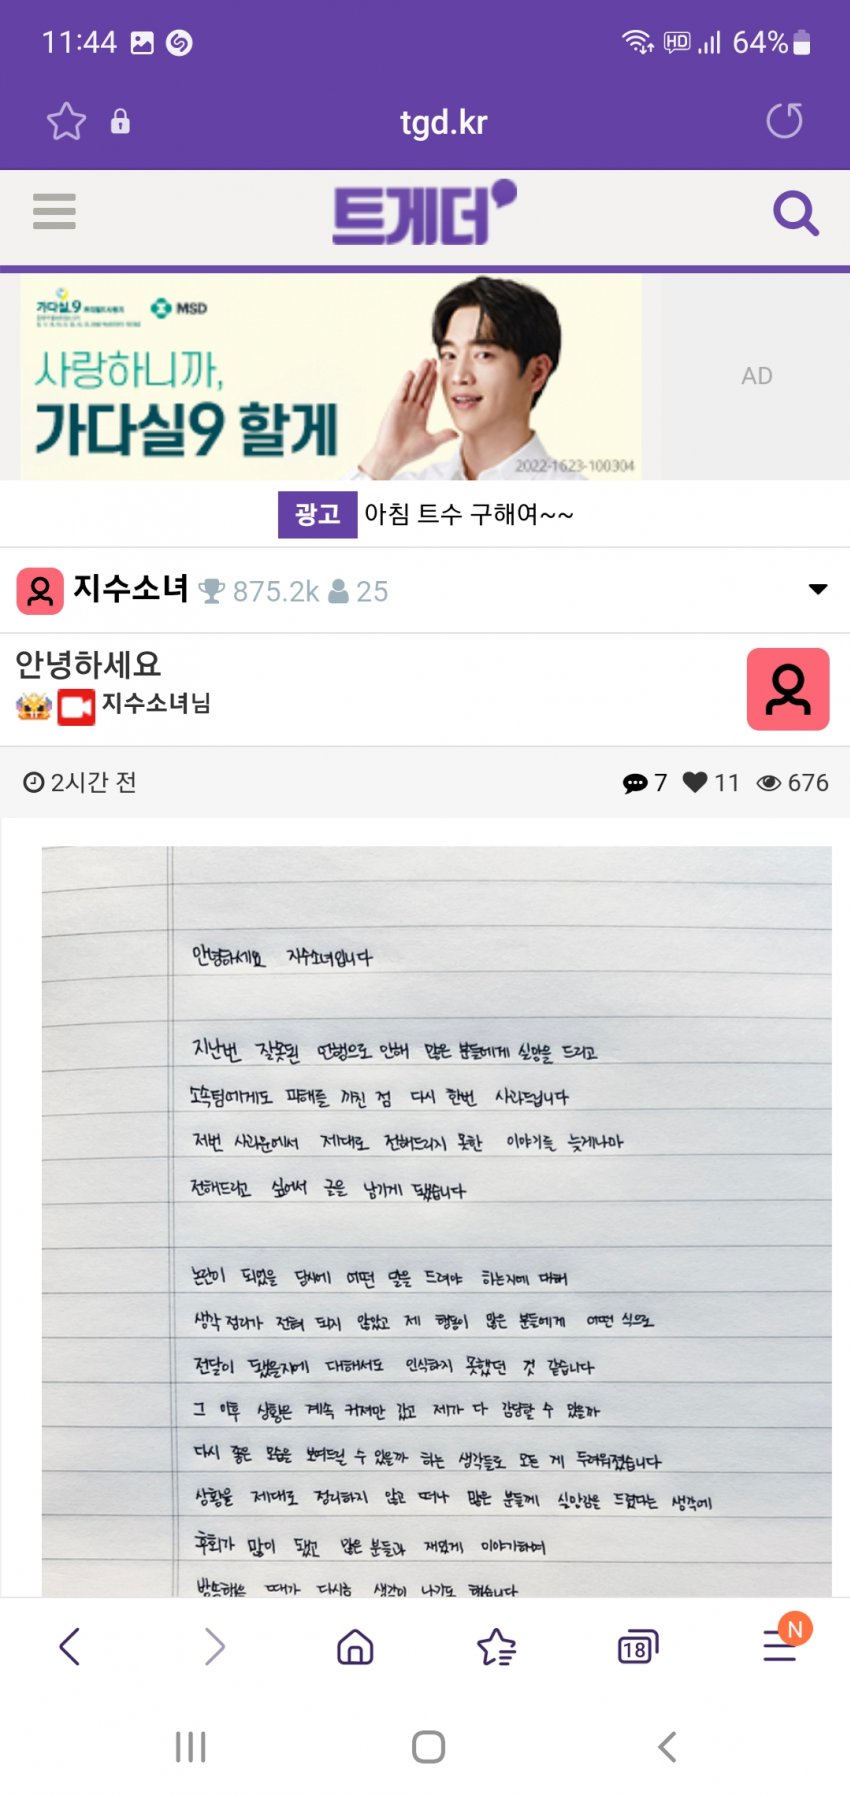 11:44 64%
tgd.kr
트게더
가다실.9 MSD
사랑하니까,
가다실9 할게
2022-1623-100304
AD
광고 아침 트수 구해여~~
지수소녀 875.2k 25
안녕하세요
지수소녀님
2시간 전 7 11 676
안녕하세요 지수소녀입니다
지난번 잘못된 언행으로 인해 많은 분들에게 실망을 드리고
소속팀에게도 피해를 끼친 점 다시 한번 사과드립니다
저번 사과문에서 제대로 전해드리지 못한 이야기를 늦게나마
전해드리고 싶어서 글을 남기게 됐습니다
논란이 되었을 당시에 어떤 말을 드려야 하는지에 대해
생각 정리가 전혀 되지 않았고 제 행동이 많은 분들에게 어떤 식으로
전달이 됐을지에 대해서도 인식하지 못했던 것 같습니다
그 이후 상황은 계속 커져만 갔고 제가 다 감당할 수 있을까
다시 좋은 모습을 보여드릴 수 있을까 하는 생각들로 모든 게 두려워졌습니다
상황을 제대로 정리하지 않고 떠나 많은 분들께 실망감을 드렸다는 생각에
후회가 많이 됐고 많은 분들과 재밌게 이야기하며
방송했던 때가 다시금 생각이 나기도 했습니다
18 N